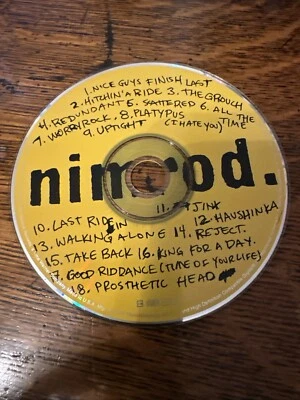 1. NICE GUYS FINISH LAST
2. HITCHIN' A RIDE 3. THE GROUCH
4. REDUNDANT 5. SCATTERED 6. ALL THE TIME
7. WORRY ROCK. 8. PLATYPUS (I HATE YOU)
9. UPTIGHT
nimrod.
10. LAST RIDE IN 11. JINX
12. HAUSHINKA
13. WALKING ALONE 14. REJECT.
15. TAKE BACK 16. KING FOR A DAY.
17. GOOD RIDDANCE (TIME OF YOUR LIFE)
18. PROSTHETIC HEAD